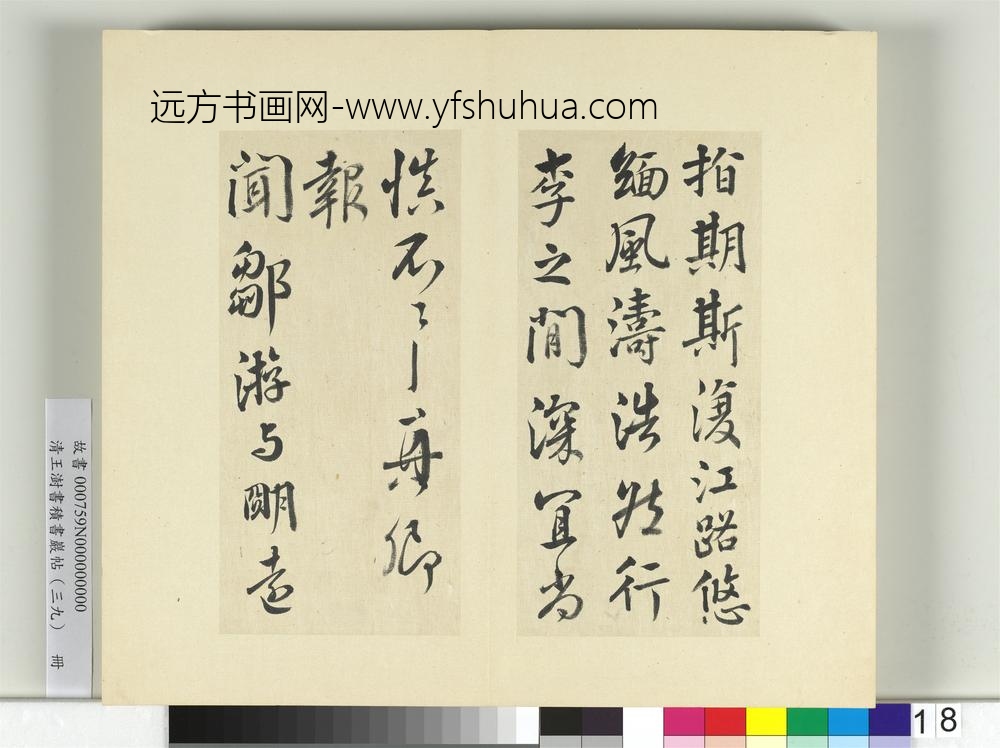 远方书画网-www.yfshuhua.com
指期斯復江路悠
緬風濤浩然行
李之間深宜尚
慎不〻丨再卿
報
聞鄒游与明遠
故書 000759N000000000
清王澍書積書巖帖（三九） 冊
18